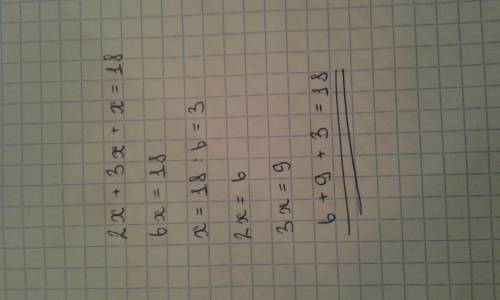 2x + 3x + x = 18
6x = 18
x = 18 : 6 = 3
2x = 6
3x = 9
6 + 9 + 3 = 18